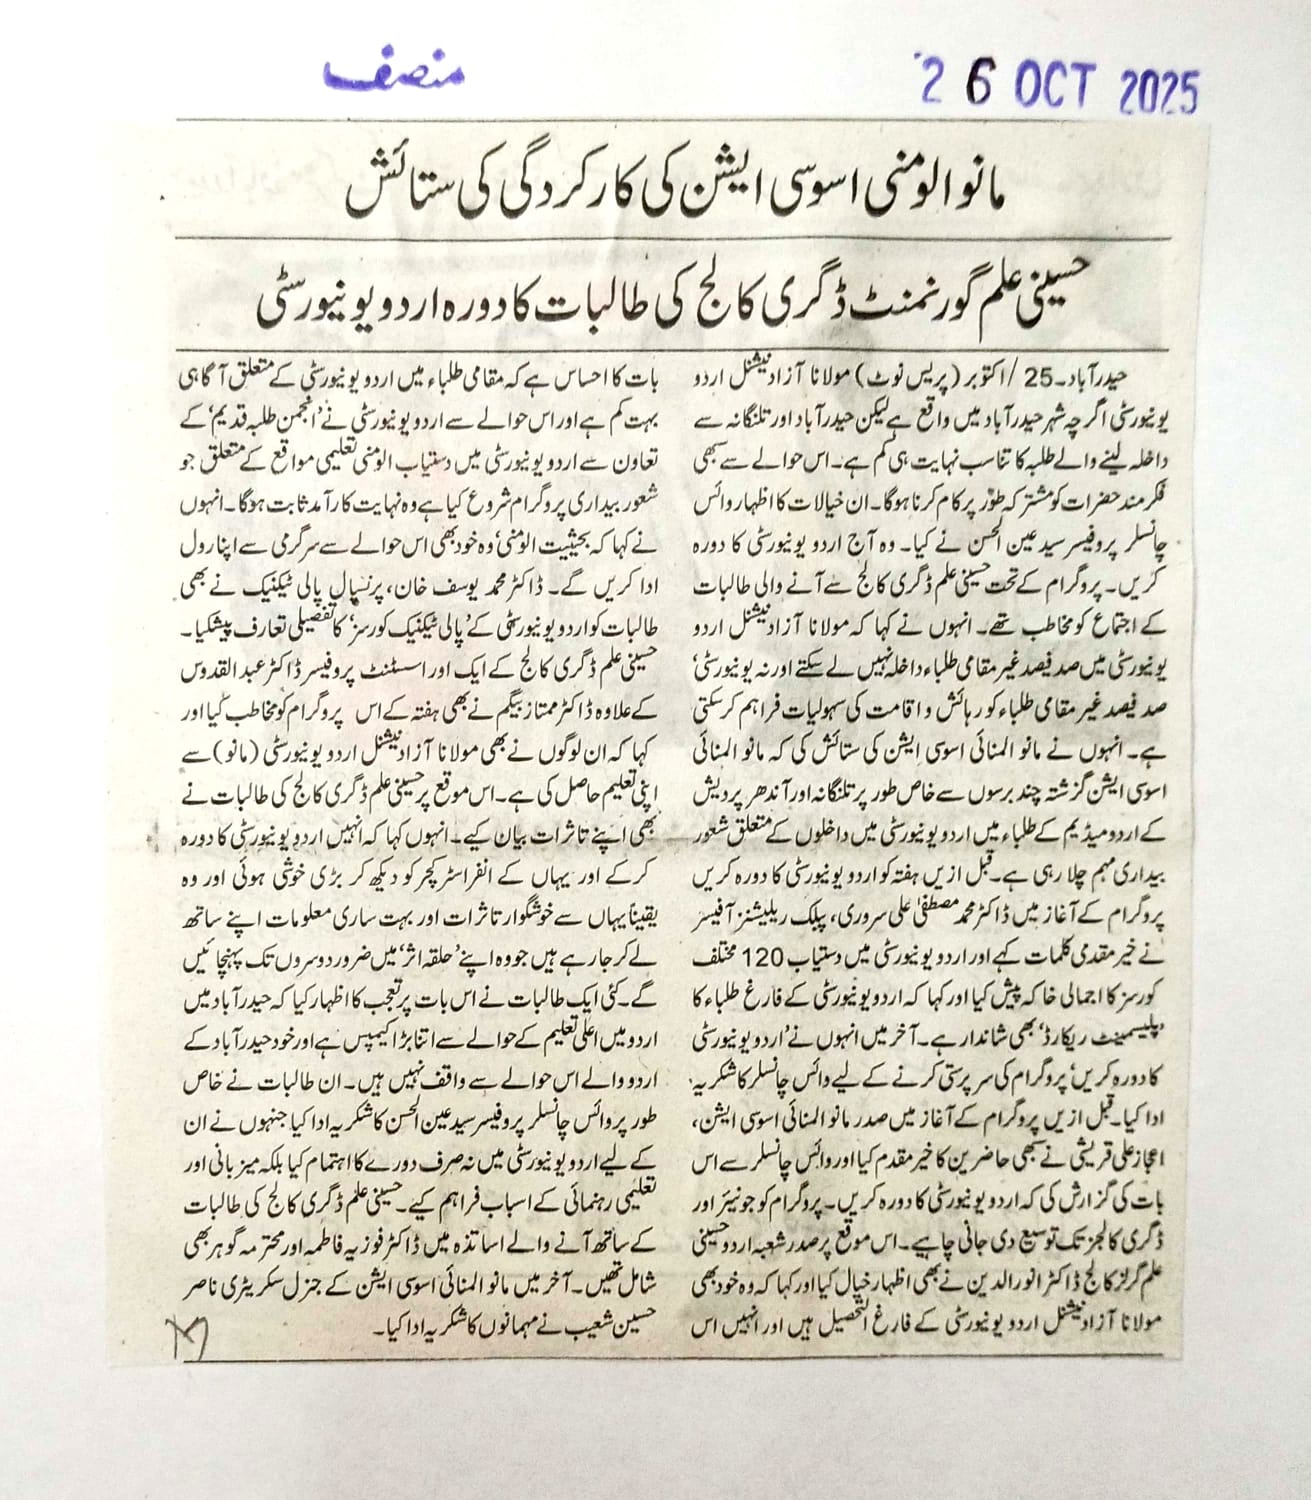 منصف
26 OCT 2025
مانو الومنی اسوسی ایشن کی کارکردگی کی ستائش
حسینی علم گورنمنٹ ڈگری کالج کی طالبات کا دورہ اردو یونیورسٹی
حیدرآباد۔25 /اکتوبر (پریس نوٹ) مولانا آزاد نیشنل اردو
یونیورسٹی اگرچہ شہر حیدرآباد میں واقع ہے لیکن حیدرآباد اور تلنگانہ سے
داخلہ لینے والے طلبہ کا تناسب نہایت ہی کم ہے۔ اس حوالے سے بھی
فکرمند حضرات کو مشترکہ طور پر کام کرنا ہوگا۔ ان خیالات کا اظہار وائس
چانسلر پروفیسر سید عین الحسن نے کیا۔ وہ آج اردو یونیورسٹی کا دورہ
کریں۔ پروگرام کے تحت حسینی علم ڈگری کالج سے آنے والی طالبات
کے اجتماع کو مخاطب تھے۔ انہوں نے کہا کہ مولانا آزاد نیشنل اردو
یونیورسٹی میں صد فیصد غیر مقامی طلباء داخلہ نہیں لے سکتے اور نہ یونیورسٹی'
صد فیصد غیر مقامی طلباء کو رہائش و اقامت کی سہولیات فراہم کرسکتی
ہے۔ انہوں نے مانو المنائی اسوسی ایشن کی ستائش کی کہ مانو المنائی
اسوسی ایشن گزشتہ چند برسوں سے خاص طور پر تلنگانہ اور آندھرا پردیش
کے اردو میڈیم کے طلباء میں اردو یونیورسٹی میں داخلوں کے متعلق شعور
بیداری مہم چلا رہی ہے۔ قبل ازیں ہفتہ کو اردو یونیورسٹی کا دورہ کریں
پروگرام کے آغاز میں ڈاکٹر محمد مصطفیٰ علی سروری، پبلک ریلیشنز آفیسر
نے خیر مقدمی کلمات کہے اور اردو یونیورسٹی میں دستیاب 120 مختلف
کورسز کا اجمالی خاکہ پیش کیا اور کہا کہ اردو یونیورسٹی کے فارغ طلباء کا
'پلیسمینٹ ریکارڈ' بھی شاندار ہے۔ آخر میں انہوں نے 'اردو یونیورسٹی
کا دورہ کریں' پروگرام کی سرپرستی کرنے کے لیے وائس چانسلر کا شکریہ
ادا کیا۔ قبل ازیں پروگرام کے آغاز میں صدر مانو المنائی اسوسی ایشن،
اعجاز علی قریشی نے بھی حاضرین کا خیر مقدم کیا اور وائس چانسلر سے اس
بات کی گزارش کی کہ اردو یونیورسٹی کا دورہ کریں۔ پروگرام کو جونیئر اور
ڈگری کالجز تک توسیع دی جانی چاہیے۔ اس موقع پر صدر شعبہ اردو حسینی
علم گرلز کالج ڈاکٹر انورالدین نے بھی اظہار خیال کیا اور کہا کہ وہ خود بھی
مولانا آزاد نیشنل اردو یونیورسٹی کے فارغ التحصیل ہیں اور انہیں اس
بات کا احساس ہے کہ مقامی طلباء میں اردو یونیورسٹی کے متعلق آگاہی
بہت کم ہے اور اس حوالے سے اردو یونیورسٹی نے 'انجمن طلبہ قدیم' کے
تعاون سے اردو یونیورسٹی میں دستیاب الومنی تعلیمی مواقع کے متعلق جو
شعور بیداری پروگرام شروع کیا ہے وہ نہایت کارآمد ثابت ہوگا۔ انہوں
نے کہا کہ بحیثیت الومنی' وہ خود بھی اس حوالے سے سرگرمی سے اپنا رول
ادا کریں گے۔ ڈاکٹر محمد یوسف خان، پرنسپال پالی ٹیکنیک نے بھی
طالبات کو اردو یونیورسٹی کے 'پالی ٹیکنیک کورسز' کا تفصیلی تعارف پیشکیا۔
حسینی علم ڈگری کالج کے ایک اور اسسٹنٹ پروفیسر ڈاکٹر عبدالقدوس
کے علاوہ ڈاکٹر ممتاز بیگم نے بھی ہفتہ کے اس پروگرام کو مخاطب کیا اور
کہا کہ ان لوگوں نے بھی مولانا آزاد نیشنل اردو یونیورسٹی (مانو) سے
اپنی تعلیم حاصل کی ہے۔ اس موقع پر حسینی علم ڈگری کالج کی طالبات نے
بھی اپنے تاثرات بیان کیے۔ انہوں کہا کہ انہیں اردو یونیورسٹی کا دورہ
کرکے اور یہاں کے انفراسٹرکچر کو دیکھ کر بڑی خوشی ہوئی اور وہ
یقیناً یہاں سے خوشگوار تاثرات اور بہت ساری معلومات اپنے ساتھ
لے کر جارہے ہیں جو وہ اپنے 'حلقہ اثر' میں ضرور دوسروں تک پہنچائیں
گے۔ کئی ایک طالبات نے اس بات پر تعجب کا اظہار کیا کہ حیدرآباد میں
اردو میں اعلی تعلیم کے حوالے سے اتنا بڑا کیمپس ہے اور خود حیدرآباد کے
اردو والے اس حوالے سے واقف نہیں ہیں۔ ان طالبات نے خاص
طور پر وائس چانسلر پروفیسر سید عین الحسن کا شکریہ ادا کیا جنہوں نے ان
کے لیے اردو یونیورسٹی میں نہ صرف دورے کا اہتمام کیا بلکہ میزبانی اور
تعلیمی رہنمائی کے اسباب فراہم کیے۔ حسینی علم ڈگری کالج کی طالبات
کے ساتھ آنے والے اساتذہ میں ڈاکٹر فوزیہ فاطمہ اور محترمہ گوہر بھی
شامل تھیں۔ آخر میں مانو المنائی اسوسی ایشن کے جنرل سکریٹری ناصر
حسین شعیب نے مہمانوں کا شکریہ ادا کیا۔